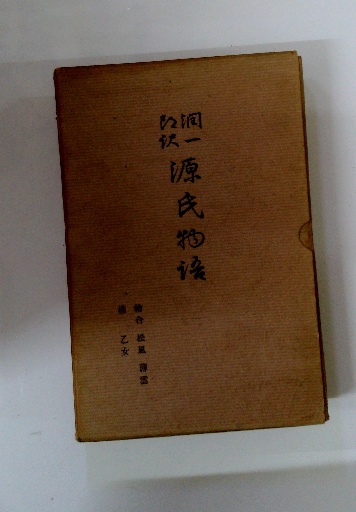 潤一
郎訳
源氏物語
絵合 松風 薄雲
乙女